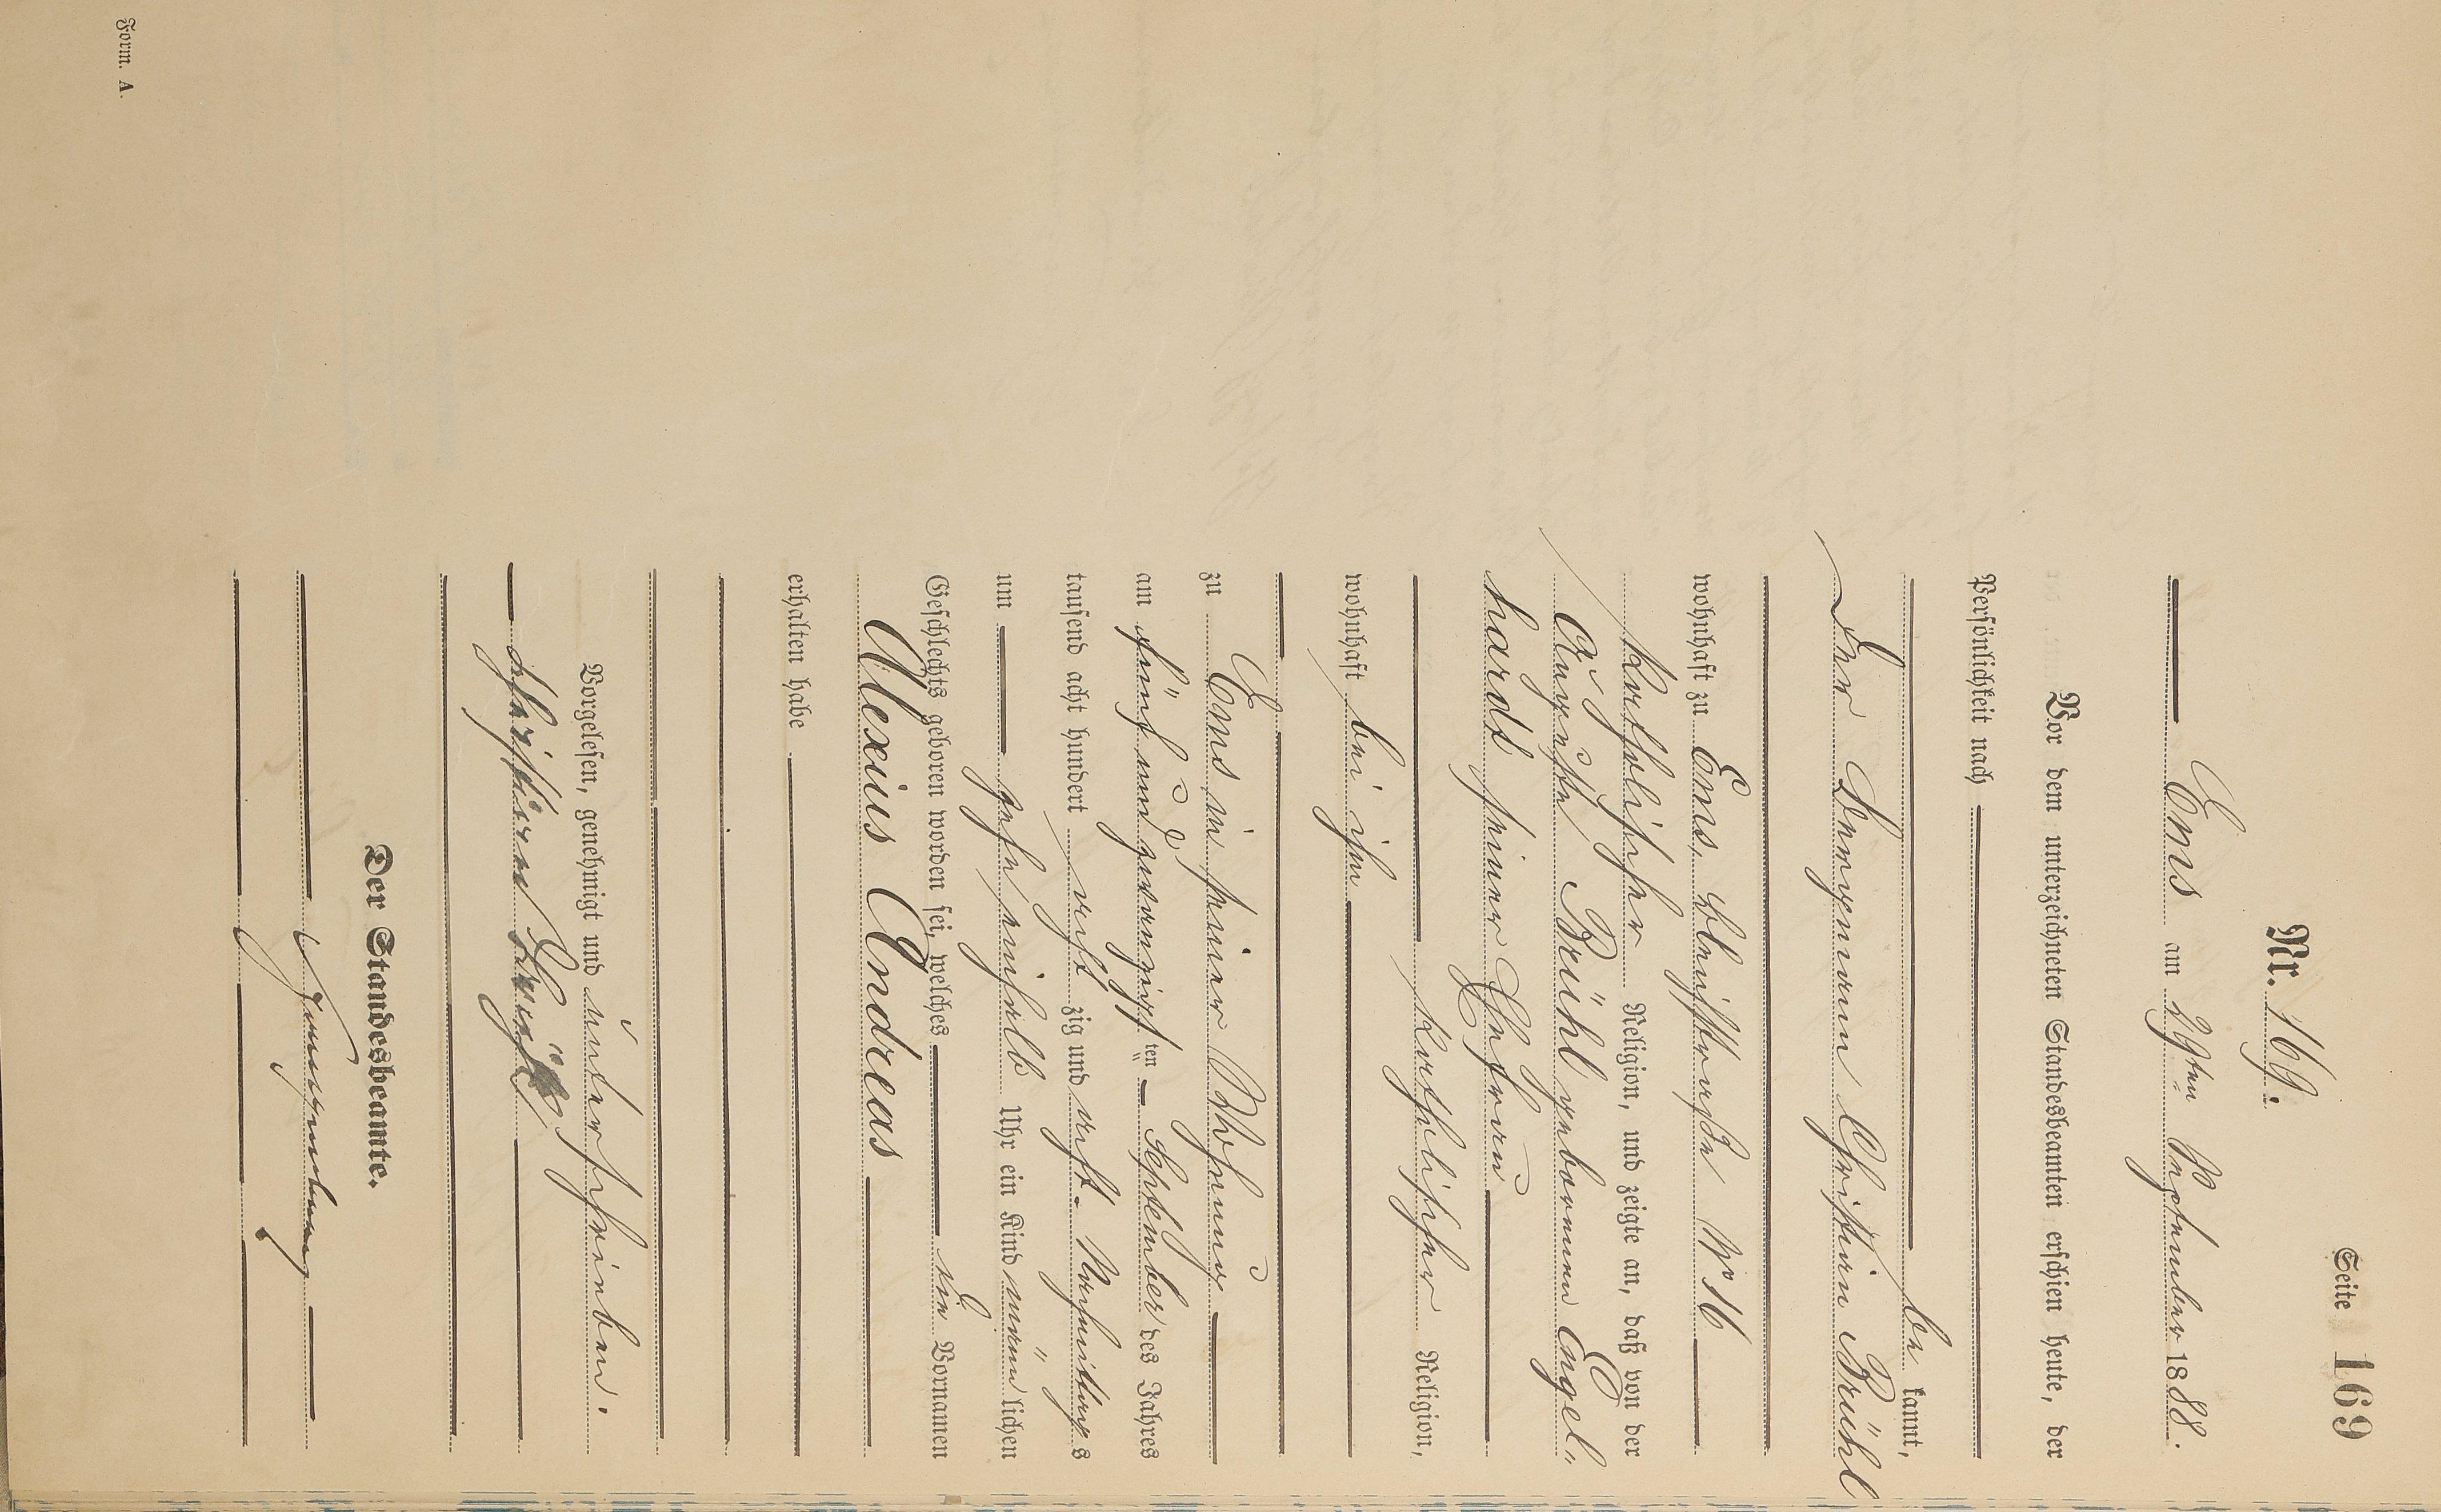 Seite 169
Nr. 169.
Ems am 29ten September 1888.
Vor dem unterzeichneten Standesbeamten erschien heute, der
Persönlichkeit nach
be kannt,
der Bergmann Christian Brühl
wohnhaft zu Ems, Bleichstraße No 16
katholischer Religion, und zeigte an, daß von der
Auguste Brühl gebornen Engel-
hardt seiner Ehefrau
katholischer Religion,
wohnhaft bei ihm
zu Ems in seiner Wohnung
am fünf und zwanzigsten September des Jahres
tausend acht hundert acht zig und acht Nachmittags
um zehn einhalb Uhr ein Kind männ lichen
Geschlechts geboren worden sei, welches die Vornamen
Alexius Andreas
erhalten habe
Vorgelesen, genehmigt und unterschrieben.
Christian Brühl
Der Standesbeamte.
Form. A.